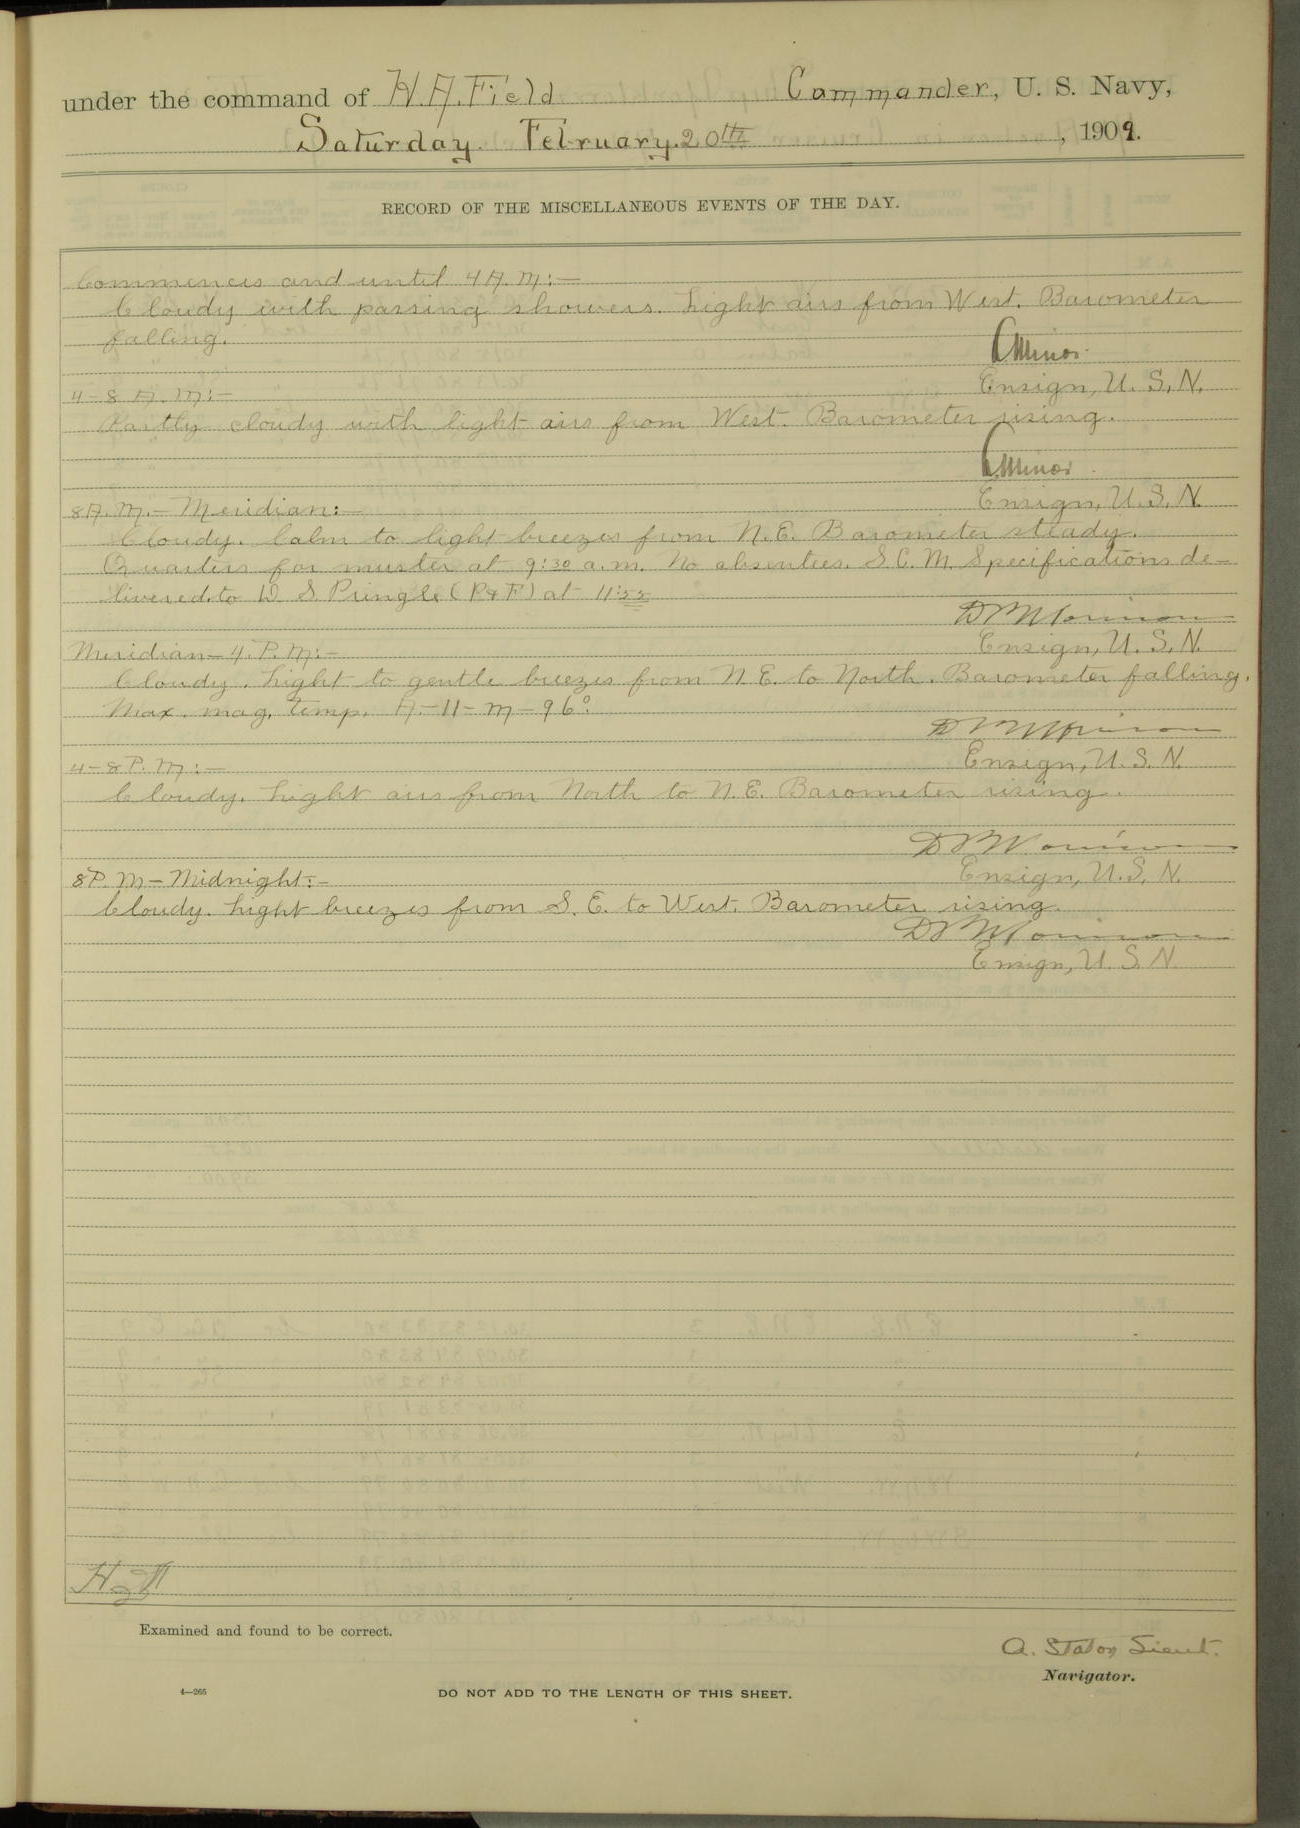 under the command of H. A. Field Commander, U. S. Navy,
Saturday. February. 20th, 1909.
RECORD OF THE MISCELLANEOUS EVENTS OF THE DAY.
Commences and until 4 A. M:—
Cloudy with passing showers. Light airs from West. Barometer
falling.
C Minor
Ensign, U. S. N.
4-8 A. M:—
Partly cloudy with light airs from West. Barometer rising.
C Minor
Ensign, U. S. N.
8 A. M.— Meridian:—
Cloudy. Calm to light breezes from N. E. Barometer steady.
Quarters for muster at 9:30 a. m. No absentees. S. C. M. Specifications de-
livered to W. S. Pringle (P & F) at 11:55
Ensign, U. S. N.
Meridian— 4. P. M:—
Cloudy. Light to gentle breezes from N. E. to North. Barometer falling.
Max. mag. temp. A-11-M-96°.
Ensign, U. S. N.
4-8 P. M:—
Cloudy. Light airs from North to N. E. Barometer rising.
Ensign, U. S. N.
8 P. M— Midnight:-
Cloudy. Light breezes from S. E. to West. Barometer rising.
Ensign, U. S. N.
Examined and found to be correct.
A. Staton Lieut.
Navigator.
4—265
DO NOT ADD TO THE LENGTH OF THIS SHEET.